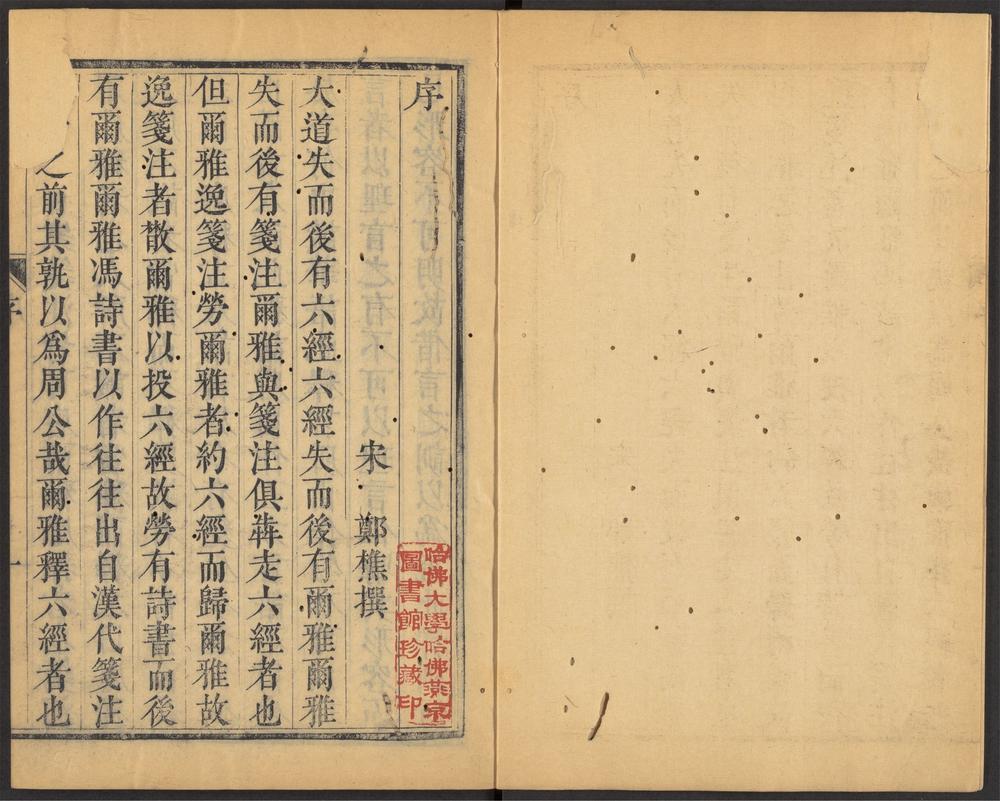 序
宋 鄭樵撰
大道失而後有六經六經失而後有爾雅爾雅
失而後有箋注爾雅與箋注俱犇走六經者也
但爾雅逸箋注勞爾雅者約六經而歸爾雅故
逸箋注者散爾雅以投六經故勞有詩書而後
有爾雅爾雅馮詩書以作往往出自漢代箋注
之前其孰以爲周公哉爾雅釋六經者也
序
一
哈佛大學哈佛燕京
圖書館珍藏印